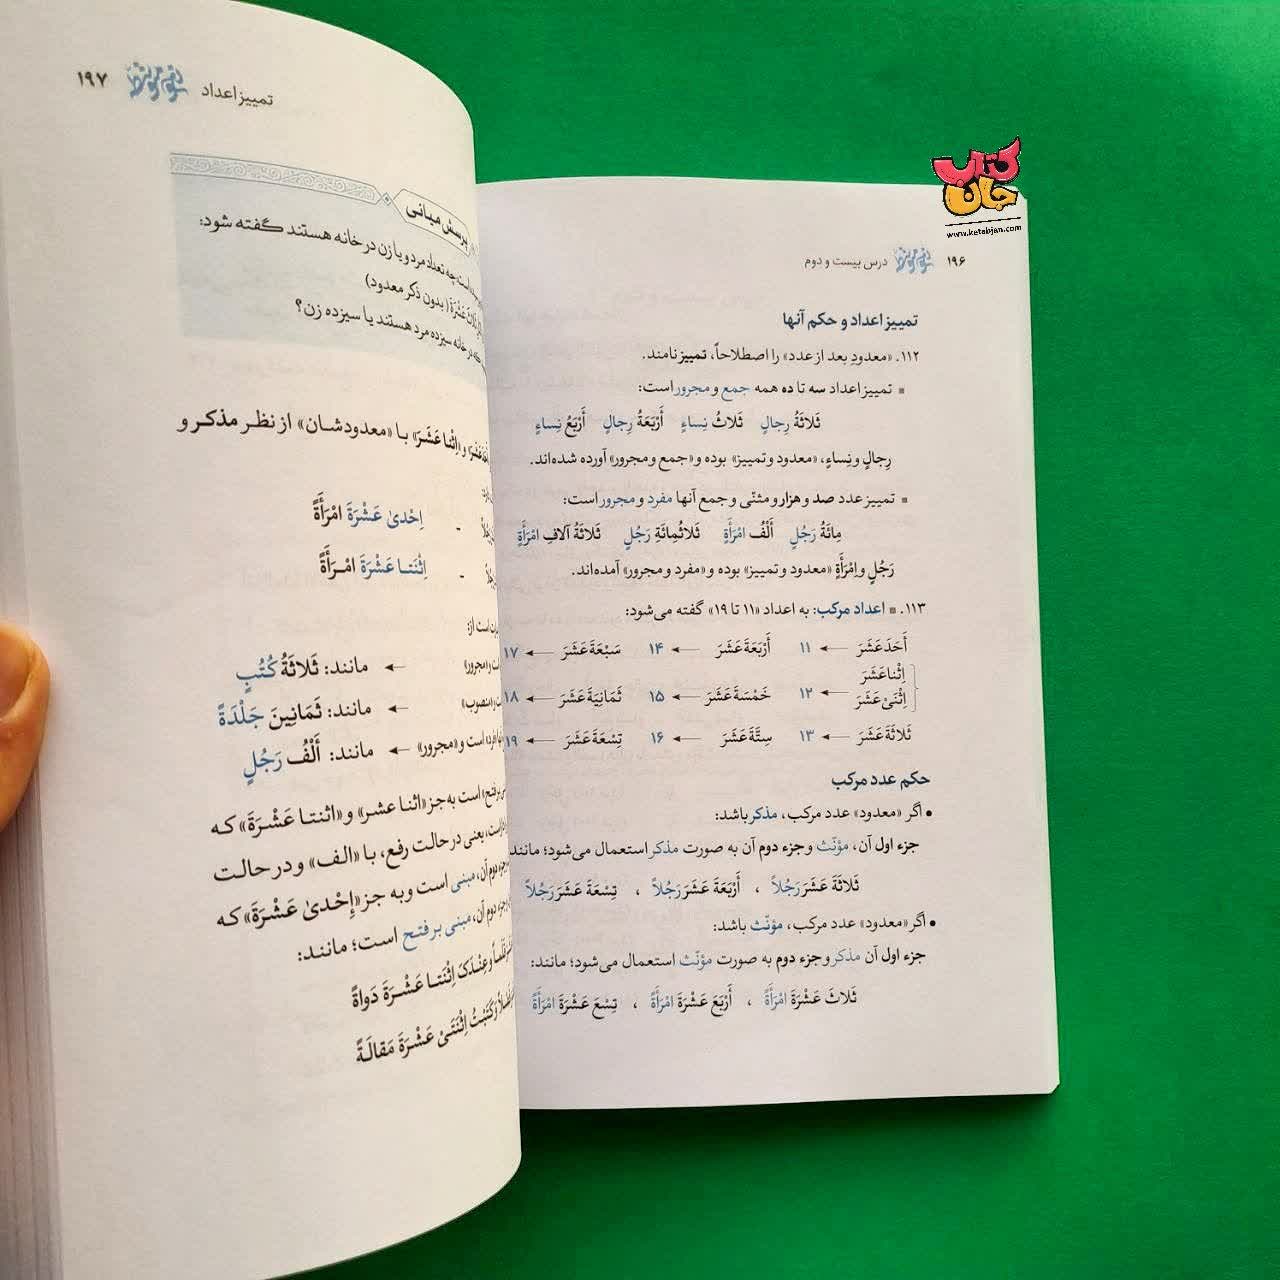 کتاب جان
www.ketabjan.com
۱۹۶ درس بیست و دوم
تمییز اعداد و حکم آنها
۱۱۲. «معدودِ بعد از عدد» را اصطلاحاً، تمییز نامند.
▪ تمییز اعداد سه تا ده همه جمع و مجرور است:
ثَلاثَةُ رِجالٍ ثَلاثُ نِساءٍ أَرْبَعَةُ رِجالٍ أَرْبَعُ نِساءٍ
رِجالٍ و نِساءٍ، «معدود و تمییز» بوده و «جمع و مجرور» آورده شده‌اند.
▪ تمییز عدد صد و هزار و مثنّی و جمع آنها مفرد و مجرور است:
مِائَةُ رَجُلٍ أَلْفُ امْرَأَةٍ ثَلاثُمِائَةِ رَجُلٍ ثَلاثَةُ آلافِ امْرَأَةٍ
رَجُلٍ و اِمْرَأَةٍ «معدود و تمییز» بوده و «مفرد و مجرور» آمده‌اند.
۱۱۳. ▪ اعداد مرکب: به اعداد «۱۱ تا ۱۹» گفته می‌شود:
أَحَدَ عَشَرَ ← ۱۱ أَرْبَعَةَ عَشَرَ ← ۱۴ سَبْعَةَ عَشَرَ ← ۱۷
اِثْنا عَشَرَ
اِثْنَیْ عَشَرَ ← ۱۲ خَمْسَةَ عَشَرَ ← ۱۵ ثَمَانِيَةَ عَشَرَ ← ۱۸
ثَلاثَةَ عَشَرَ ← ۱۳ سِتَّةَ عَشَرَ ← ۱۶ تِسْعَةَ عَشَرَ ← ۱۹
حکم عدد مرکب
• اگر «معدود» عدد مرکب، مذکر باشد:
جزء اول آن، مؤنّث و جزء دوم آن به صورت مذکر استعمال می‌شود؛ مانند
ثَلاثَةَ عَشَرَ رَجُلاً ، أَرْبَعَةَ عَشَرَ رَجُلاً ، تِسْعَةَ عَشَرَ رَجُلاً
• اگر «معدود» عدد مرکب، مؤنّث باشد:
جزء اول آن مذکر و جزء دوم به صورت مؤنّث استعمال می‌شود؛ مانند:
ثَلاثَ عَشْرَةَ امْرَأَةً ، أَرْبَعَ عَشْرَةَ امْرَأَةً ، تِسْعَ عَشْرَةَ امْرَأَةً
تمییز اعداد ۱۹۷
پرسش میانی
چه تعداد مرد و یا زن در خانه هستند گفته شود:
(بدون ذکر معدود)
که در خانه سیزده مرد هستند یا سیزده زن؟
و «اِثْنا عَشَرَ» با «معدودشان» از نظر مذکر و
- اِحْدیٰ عَشْرَةَ امْرَأَةً
- اِثْنَتا عَشْرَةَ امْرَأَةً
است از:
است و «مجرور» ← مانند: ثَلاثَةُ کُتُبٍ
«منصوب» ← مانند: ثَمَانِينَ جَلْدَةً
است و «مجرور» ← مانند: أَلْفُ رَجُلٍ
است به جز «اثنا عشر» و «اثنتا عَشْرَةَ» که
است، یعنی در حالت رفع، با «الف» و در حالت
جزء دوم آن، مبنی است و به جز «إِحْدیٰ عَشْرَةَ» که
جزء دوم آن، مبنی بر فتح است؛ مانند:
وَعِنْدَکَ اِثْنَتا عَشْرَةَ دَواةً
وَکَتَبْتُ اِثْنَتَیْ عَشْرَةَ مَقالَةً